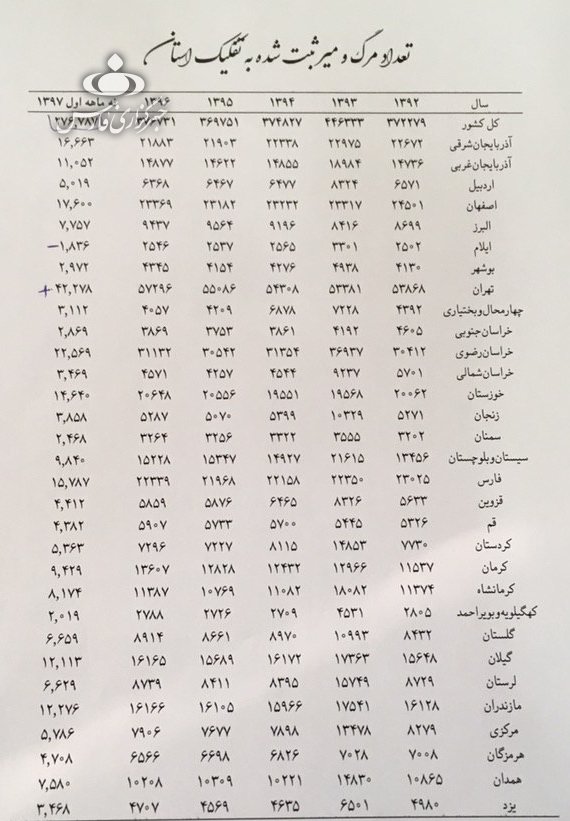 تعداد مرگ و میر ثبت شده به تفکیک استان
خبرگزاری فارس
سال ۱۳۹۲ ۱۳۹۳ ۱۳۹۴ ۱۳۹۵ ۱۳۹۶ نه ماهه اول ۱۳۹۷
کل کشور ۳۷۲۲۷۹ ۴۴۶۳۳۳ ۳۷۴۸۲۷ ۳۶۹۷۵۱ ۲۷۶,۷۸۷
آذربایجان‌شرقی ۲۲۶۷۲ ۲۲۹۷۵ ۲۲۳۳۸ ۲۱۹۰۳ ۲۱۸۸۳ ۱۶,۶۶۳
آذربایجان‌غربی ۱۴۷۳۶ ۱۸۹۸۴ ۱۴۸۵۵ ۱۴۶۲۲ ۱۴۸۷۷ ۱۱,۰۵۲
اردبیل ۶۵۷۱ ۸۳۲۴ ۶۴۷۷ ۶۴۶۷ ۶۳۶۸ ۵,۰۱۹
اصفهان ۲۴۵۰۱ ۲۳۳۱۷ ۲۳۲۳۲ ۲۳۱۸۲ ۲۳۳۶۹ ۱۷,۶۰۰
البرز ۸۶۹۹ ۸۴۱۶ ۹۱۹۶ ۹۵۶۴ ۹۴۳۷ ۷,۷۵۷
ایلام ۲۵۰۲ ۳۳۰۱ ۲۵۶۵ ۲۵۳۷ ۲۵۴۶ ۱,۸۳۶ −
بوشهر ۴۱۳۰ ۴۹۳۸ ۴۲۷۶ ۴۱۵۴ ۴۳۴۵ ۲,۹۷۲
تهران ۵۳۸۶۸ ۵۳۳۸۱ ۵۴۳۰۸ ۵۵۰۸۶ ۵۷۲۹۶ ۴۲,۲۷۸ +
چهارمحال‌وبختیاری ۴۳۹۲ ۷۲۲۸ ۶۸۷۸ ۴۲۰۹ ۴۰۵۷ ۳,۱۱۲
خراسان‌جنوبی ۴۶۰۵ ۴۱۹۲ ۳۸۶۱ ۳۷۵۳ ۳۸۶۹ ۲,۸۶۹
خراسان‌رضوی ۳۰۴۱۲ ۳۶۹۳۷ ۳۱۳۵۴ ۳۰۵۴۲ ۳۱۱۳۲ ۲۲,۵۶۹
خراسان‌شمالی ۵۷۰۱ ۹۲۳۷ ۴۵۴۴ ۴۲۵۷ ۴۵۷۱ ۳,۴۶۹
خوزستان ۲۰۰۶۲ ۱۹۵۶۸ ۱۹۵۵۱ ۲۰۵۵۶ ۲۰۶۴۸ ۱۴,۶۴۰
زنجان ۵۲۷۱ ۱۰۳۲۹ ۵۳۹۹ ۵۰۷۰ ۵۲۸۷ ۳,۸۵۸
سمنان ۳۲۰۲ ۳۵۵۵ ۳۳۲۲ ۳۲۵۶ ۳۲۶۴ ۲,۴۶۸
سیستان‌وبلوچستان ۱۳۴۵۶ ۲۱۶۱۵ ۱۴۹۲۷ ۱۵۳۴۷ ۱۵۲۲۸ ۹,۸۴۰
فارس ۲۳۰۲۵ ۲۲۳۵۰ ۲۲۱۵۸ ۲۱۹۶۸ ۲۲۳۳۹ ۱۵,۷۸۷
قزوین ۵۶۳۳ ۸۳۲۶ ۶۴۶۵ ۵۸۷۶ ۵۸۵۹ ۴,۴۱۲
قم ۵۳۲۶ ۵۴۴۵ ۵۷۰۰ ۵۷۳۳ ۵۹۰۷ ۴,۳۸۲
کردستان ۷۷۳۰ ۱۴۸۵۳ ۸۱۱۵ ۷۲۲۷ ۷۲۹۶ ۵,۳۶۳
کرمان ۱۱۵۳۷ ۱۲۹۶۶ ۱۲۴۳۲ ۱۲۸۲۸ ۱۳۶۰۷ ۹,۴۲۹
کرمانشاه ۱۱۳۷۴ ۱۸۰۸۲ ۱۱۰۸۲ ۱۰۷۶۹ ۱۱۳۸۷ ۸,۱۷۴
کهگیلویه‌وبویراحمد ۲۸۰۵ ۴۵۳۱ ۲۷۰۹ ۲۷۲۶ ۲۷۸۸ ۲,۰۱۹
گلستان ۸۴۳۲ ۱۰۹۹۳ ۸۹۷۰ ۸۶۶۱ ۸۹۱۴ ۶,۶۵۹
گیلان ۱۵۶۴۸ ۱۷۳۶۳ ۱۶۱۷۲ ۱۵۶۸۹ ۱۶۱۶۵ ۱۲,۱۱۳
لرستان ۸۷۲۹ ۱۵۷۴۹ ۸۳۹۵ ۸۴۱۱ ۸۷۳۹ ۶,۶۲۹
مازندران ۱۶۱۲۸ ۱۷۵۴۱ ۱۵۹۶۶ ۱۶۱۰۵ ۱۶۱۶۶ ۱۲,۲۷۶
مرکزی ۸۲۷۹ ۱۳۴۷۸ ۷۸۹۸ ۷۶۷۷ ۷۹۰۶ ۵,۷۸۶
هرمزگان ۷۰۰۸ ۷۰۲۸ ۶۸۲۶ ۶۶۹۸ ۶۵۶۶ ۴,۷۰۸
همدان ۱۰۸۶۵ ۱۴۸۳۰ ۱۰۲۲۱ ۱۰۳۰۹ ۱۰۲۰۸ ۷,۵۸۰
یزد ۴۹۸۰ ۶۵۰۱ ۴۶۳۵ ۴۵۶۹ ۴۷۰۷ ۳,۴۶۸